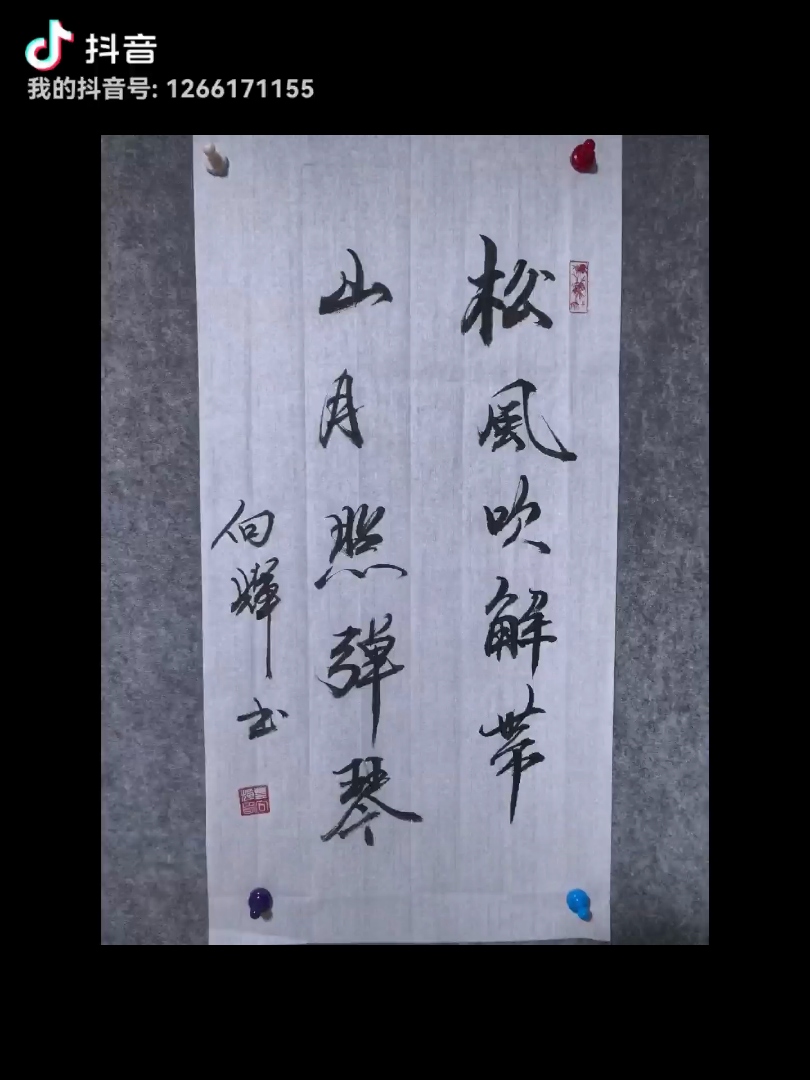 抖音
我的抖音号: 1266171155
松風吹解帶
山月照彈琴
向輝书